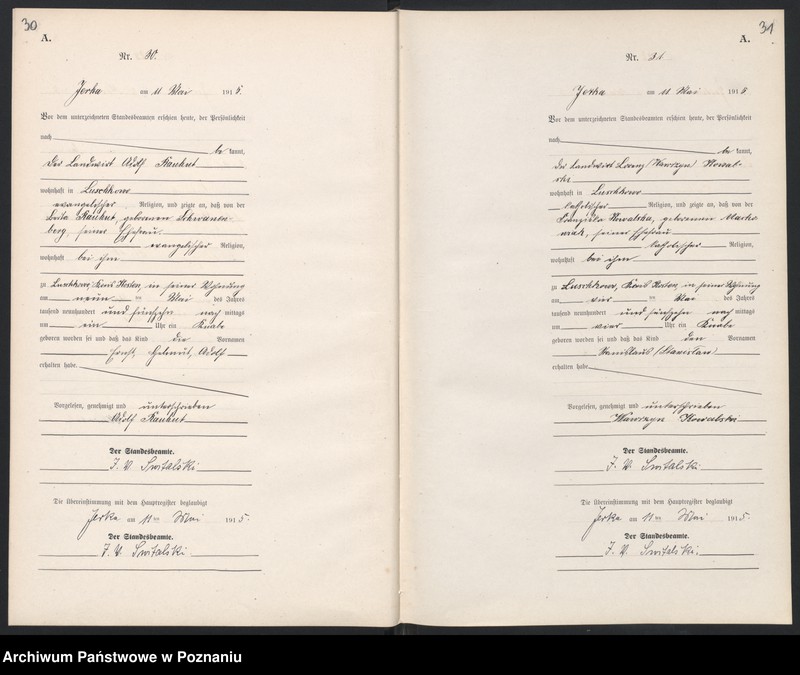 30
A.
Nr. 30.
Jerka am 11 Mai 1915.
Vor dem unterzeichneten Standesbeamten erschien heute, der Persönlichkeit
nach
be kannt,
der Landwirt Adolf Rauhut
wohnhaft in Luschkowo
evangelischer Religion, und zeigte an, daß von der
Rauhut, geborenen Schwanen-
berg seiner Ehefrau
evangelischer Religion,
wohnhaft bei ihm
zu Luschkowo, Kreis Kosten, in seiner Wohnung
am neun ten Mai des Jahres
tausend neunhundert und fünfzehn nach mittags
um ein Uhr ein Knabe
geboren worden sei und daß das Kind die Vornamen
Ernst, Helmut, Adolf
erhalten habe.
Vorgelesen, genehmigt und unterschrieben
Adolf Rauhut
Der Standesbeamte.
J. V. Switalski
Die Übereinstimmung mit dem Hauptregister beglaubigt
Jerka am 11ten Mai 1915.
Der Standesbeamte.
J. V. Switalski
31
A.
Nr. 31
Jerka am 11 Mai 1915.
Vor dem unterzeichneten Standesbeamten erschien heute, der Persönlichkeit
nach
be kannt,
der Landwirt Lorenz /Wawrzyn/ Kowal-
ski
wohnhaft in Luschkowo
katholischer Religion, und zeigte an, daß von der
Franziska Kowalska, geborenen
seiner Ehefrau
katholischer Religion,
wohnhaft bei ihm
zu Luschkowo, Kreis Kosten, in seiner Wohnung
am vier ten Mai des Jahres
tausend neunhundert und fünfzehn nach mittags
um vier Uhr ein Knabe
geboren worden sei und daß das Kind den Vornamen
Stanislaus /Stanisław/
erhalten habe.
Vorgelesen, genehmigt und unterschrieben
Wawrzyn Kowalski
Der Standesbeamte.
J. V. Switalski
Die Übereinstimmung mit dem Hauptregister beglaubigt
Jerka am 11ten Mai 1915.
Der Standesbeamte.
J. V. Switalski
Archiwum Państwowe w Poznaniu